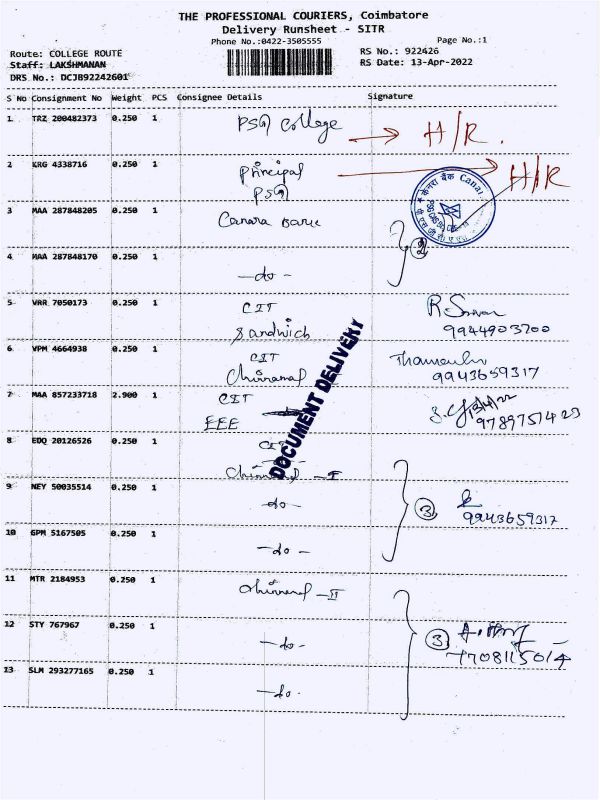 THE PROFESSIONAL COURIERS, Coimbatore
Delivery Runsheet - SITR
Phone No.:0422-3505555
Page No.:1
Route: COLLEGE ROUTE
RS No.: 922426
Staff: LAKSHMANAN
RS Date: 13-Apr-2022
DRS No.: DCJB92242601
S No Consignment No Weight PCS Consignee Details Signature
1 TRZ 200482373 0.250 1 PSG College → H/R.
2 KRG 4338716 0.250 1 Principal → H/R
PSG
3 MAA 287848205 0.250 1 Canara Bank
केनरा बैंक Canara
2
4 MAA 287848170 0.250 1 -do-
5 VRR 7050173 0.250 1 CIT
Sandwich 9944903700
6 VPM 4664938 0.250 1 CIT
Chinnamal 9943659317
7 MAA 857233718 2.900 1 CIT 13/4/22
EEE 9789751423
DOCUMENT DELIVERY
8 EDQ 20126526 0.250 1 CIT
Chinnamal - I
9 NEY 50035514 0.250 1 -do- 3
9943659317
10 GPM 5167505 0.250 1 -do-
11 MTR 2184953 0.250 1 Chinnamal - II
12 STY 767967 0.250 1 -do- 3
13 SLM 293277165 0.250 1 -do-